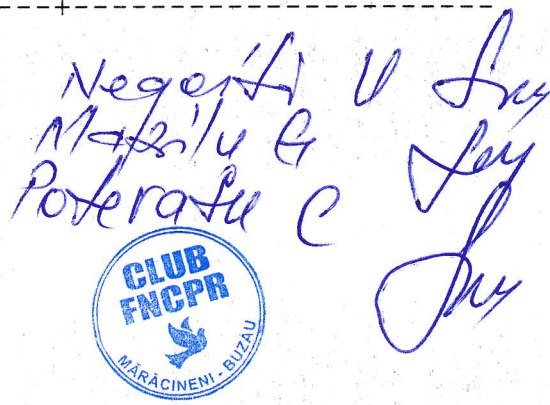 Negoiti V
Matilu G
Poteratu C
CLUB
FNCPR
MĂRĂCINENI - BUZAU